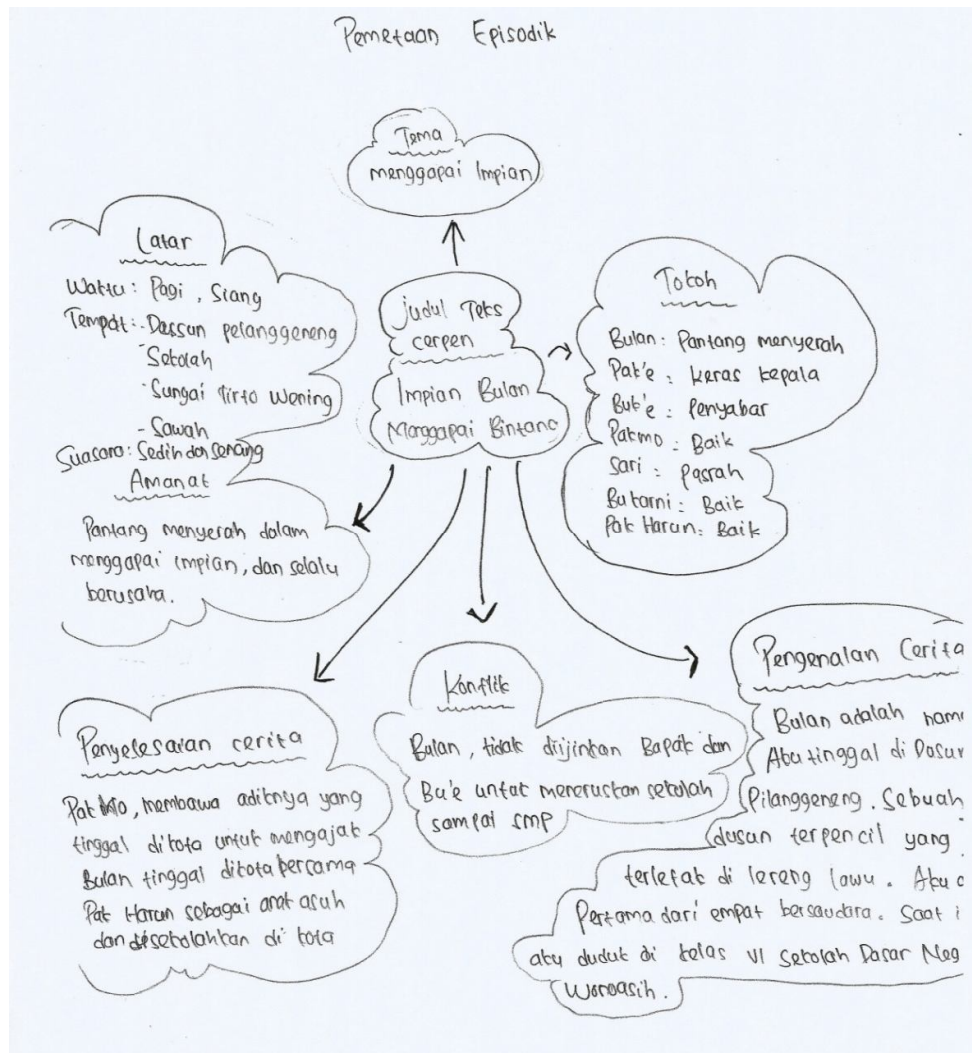 Pemetaan Episodik
Tema
menggapai Impian
Latar
Waktu : Pagi , Siang
Tempat : - Dusun pelanggeneng
- Sekolah
- Sungai Tirto Wening
- Sawah
Suasana : Sedih dan Senang
Amanat
Pantang menyerah dalam
menggapai impian, dan selalu
berusaha.
Judul Teks
cerpen
Impian Bulan
Menggapai Bintang
Tokoh
Bulan : Pantang menyerah
Pak'e : keras kepala
Buk'e : Penyabar
Pakmo : Baik
Sari : Pasrah
Bu karni : Baik
Pak Harun : Baik
Penyelesaian cerita
Pak , membawa adiknya yang
tinggal dikota untuk mengajak
Bulan tinggal dikota bersama
Pak Harun sebagai anak asuh
dan disekolahkan di kota
Konflik
Bulan , tidak diijinkan Bapak dan
Bu'e untuk meneruskan sekolah
sampai smp
Pengenalan Cerita
Bulan adalah nam
Aku tinggal di Dusun
Pilanggeneng . Sebuah
dusun terpencil yang
terletak di lereng lawu . Aku a
Pertama dari empat bersaudara . Saat i
aku duduk di kelas VI Sekolah Dasar Neg
Woroasih .